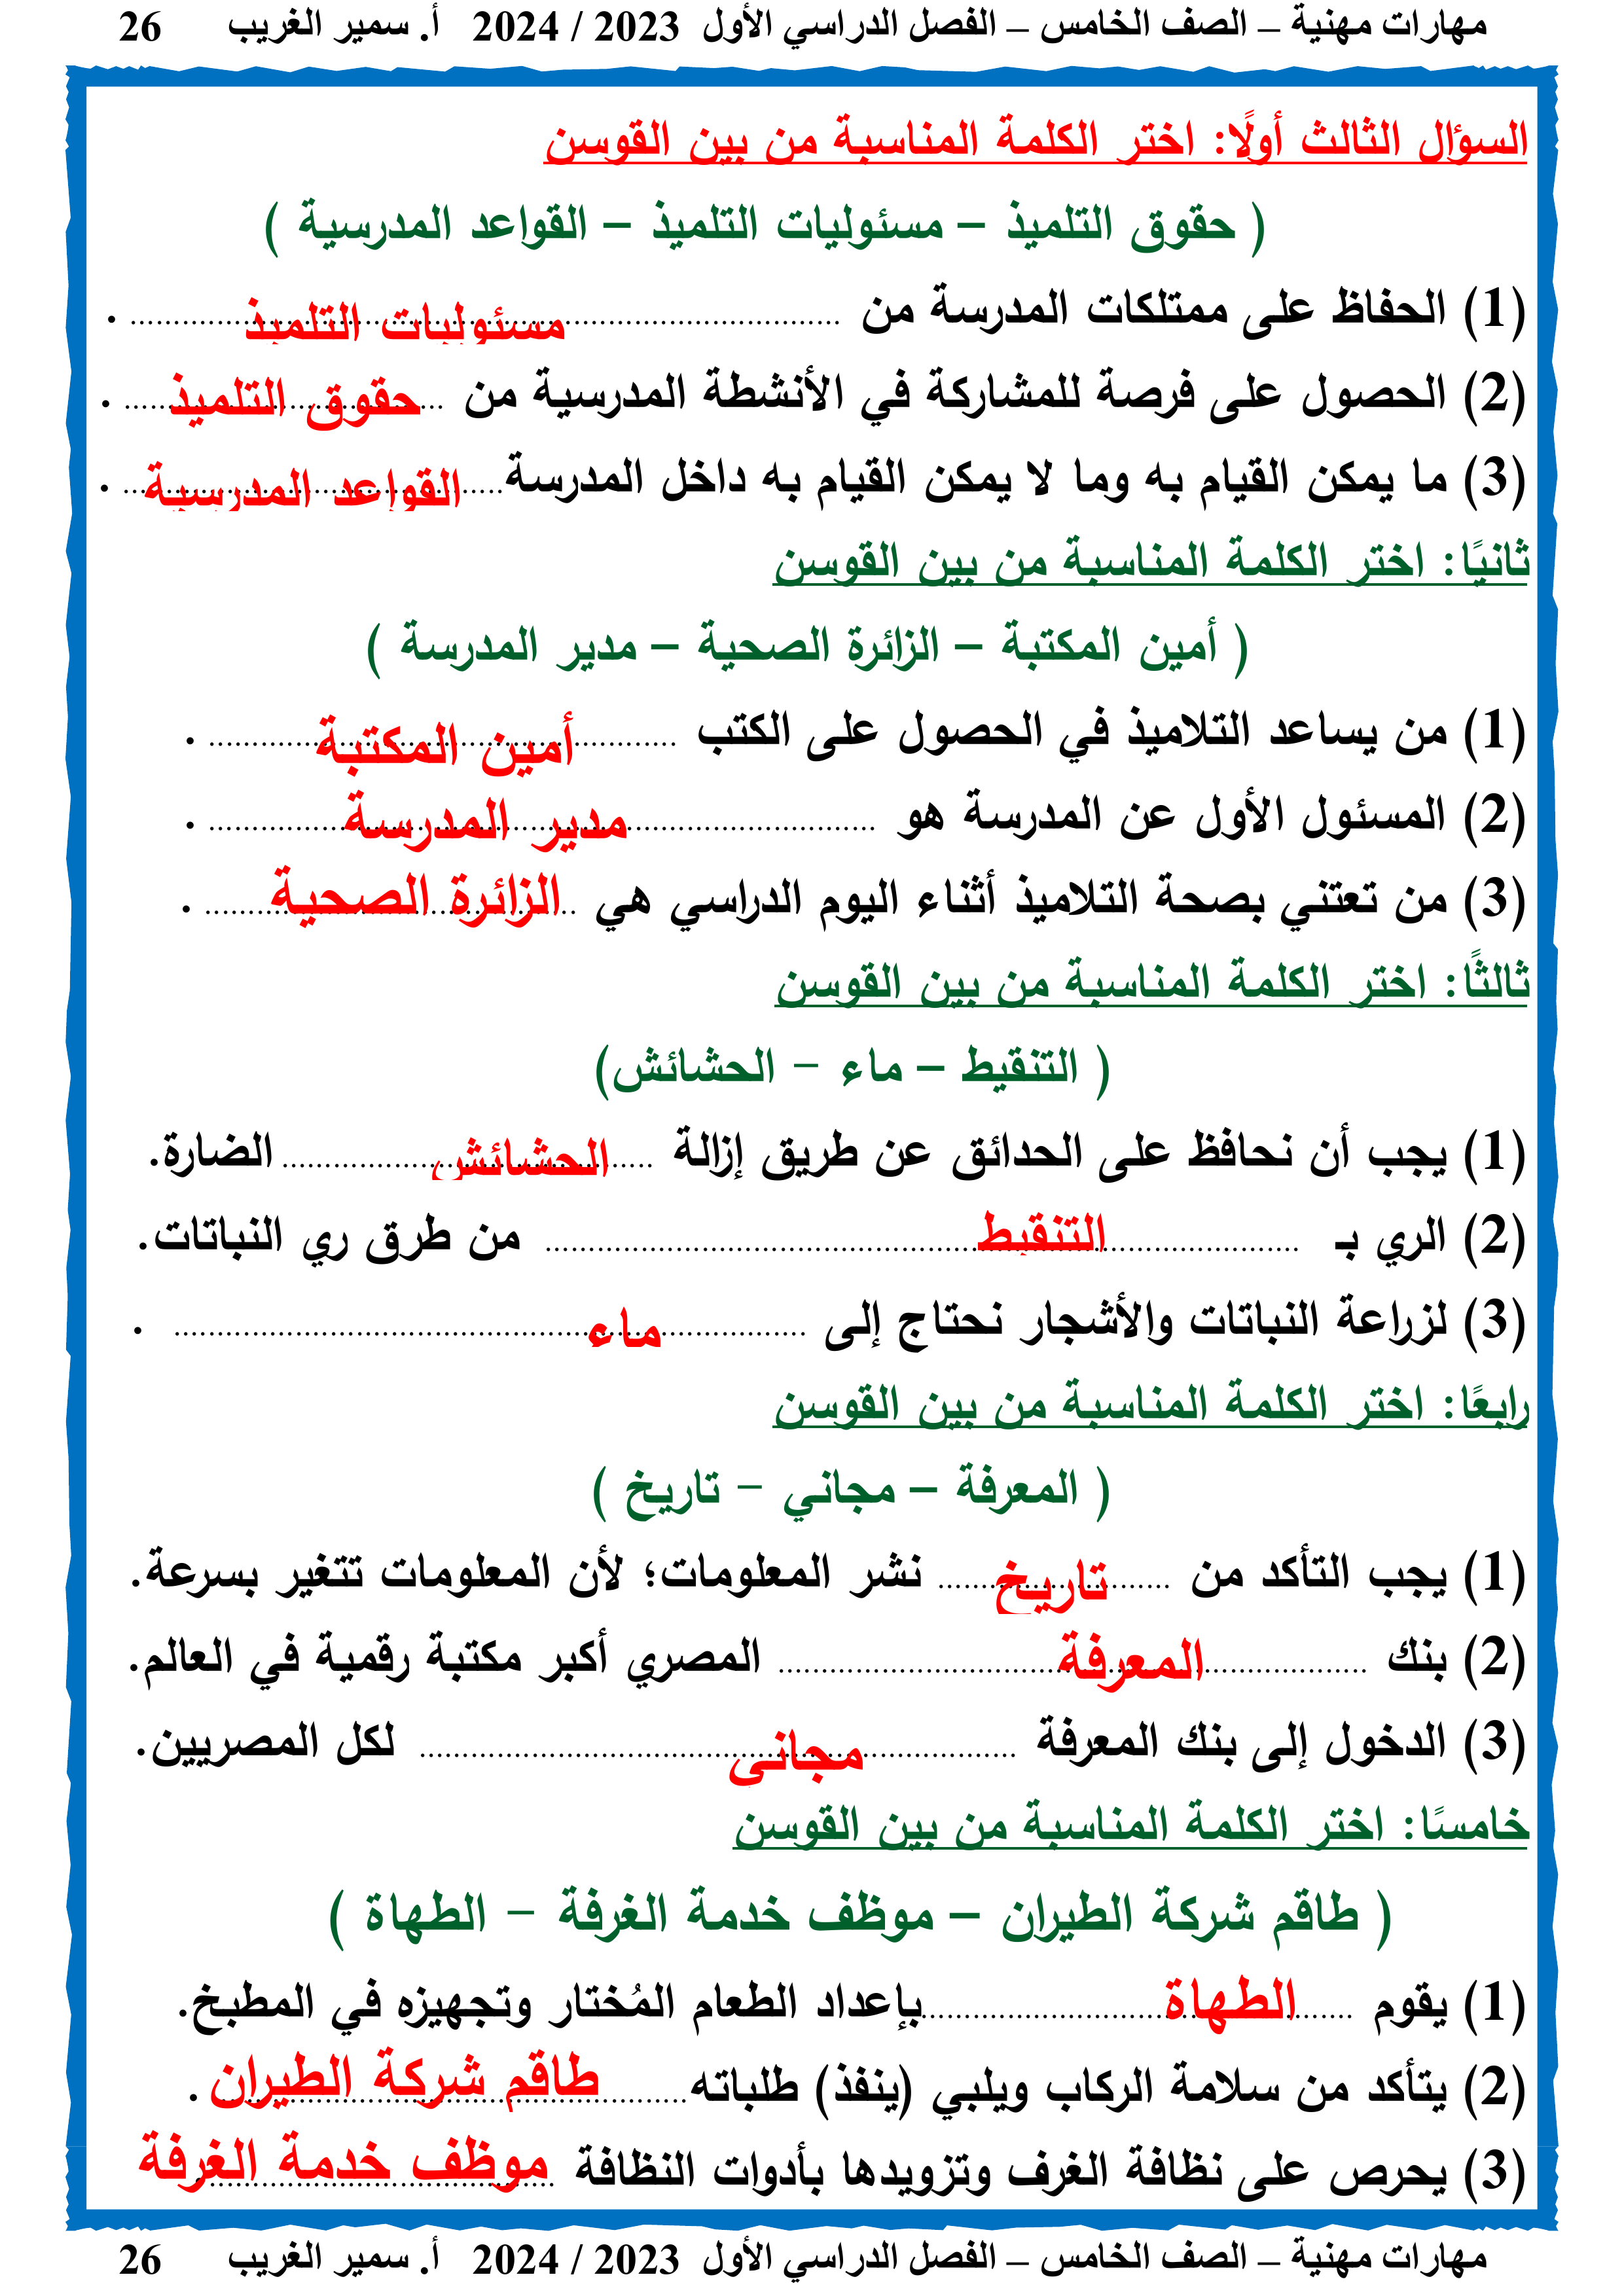 مهارات مهنية – الصف الخامس – الفصل الدراسي الأول 2023 / 2024 أ. سمير الغريب 26
السؤال الثالث أولًا: اختر الكلمة المناسبة من بين القوسن
( حقوق التلميذ – مسئوليات التلميذ – القواعد المدرسية )
(1) الحفاظ على ممتلكات المدرسة من مسئوليات التلميذ .
(2) الحصول على فرصة للمشاركة في الأنشطة المدرسية من حقوق التلميذ .
(3) ما يمكن القيام به وما لا يمكن القيام به داخل المدرسة القواعد المدرسية .
ثانيًا: اختر الكلمة المناسبة من بين القوسن
( أمين المكتبة – الزائرة الصحية – مدير المدرسة )
(1) من يساعد التلاميذ في الحصول على الكتب أمين المكتبة .
(2) المسئول الأول عن المدرسة هو مدير المدرسة .
(3) من تعتني بصحة التلاميذ أثناء اليوم الدراسي هي الزائرة الصحية .
ثالثًا: اختر الكلمة المناسبة من بين القوسن
( التنقيط – ماء – الحشائش)
(1) يجب أن نحافظ على الحدائق عن طريق إزالة الحشائش الضارة.
(2) الري بـ التنقيط من طرق ري النباتات.
(3) لزراعة النباتات والأشجار نحتاج إلى ماء .
رابعًا: اختر الكلمة المناسبة من بين القوسن
( المعرفة – مجاني – تاريخ )
(1) يجب التأكد من تاريخ نشر المعلومات؛ لأن المعلومات تتغير بسرعة.
(2) بنك المعرفة المصري أكبر مكتبة رقمية في العالم.
(3) الدخول إلى بنك المعرفة مجانى لكل المصريين.
خامسًا: اختر الكلمة المناسبة من بين القوسن
( طاقم شركة الطيران – موظف خدمة الغرفة – الطهاة )
(1) يقوم الطهاة بإعداد الطعام المُختار وتجهيزه في المطبخ.
(2) يتأكد من سلامة الركاب ويلبي (ينفذ) طلباته طاقم شركة الطيران .
(3) يحرص على نظافة الغرف وتزويدها بأدوات النظافة موظف خدمة الغرفة
مهارات مهنية – الصف الخامس – الفصل الدراسي الأول 2023 / 2024 أ. سمير الغريب 26